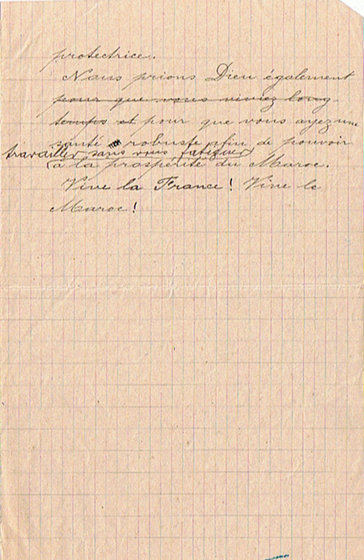 protectrice.
Nous prions Dieu également
pour que vous viviez long
temps et pour que vous ayez un
santé robuste afin de pouvoir
travailler sans vous fatiguer
à la prospérité du Maroc.
Vive la France ! Vive le
Maroc !